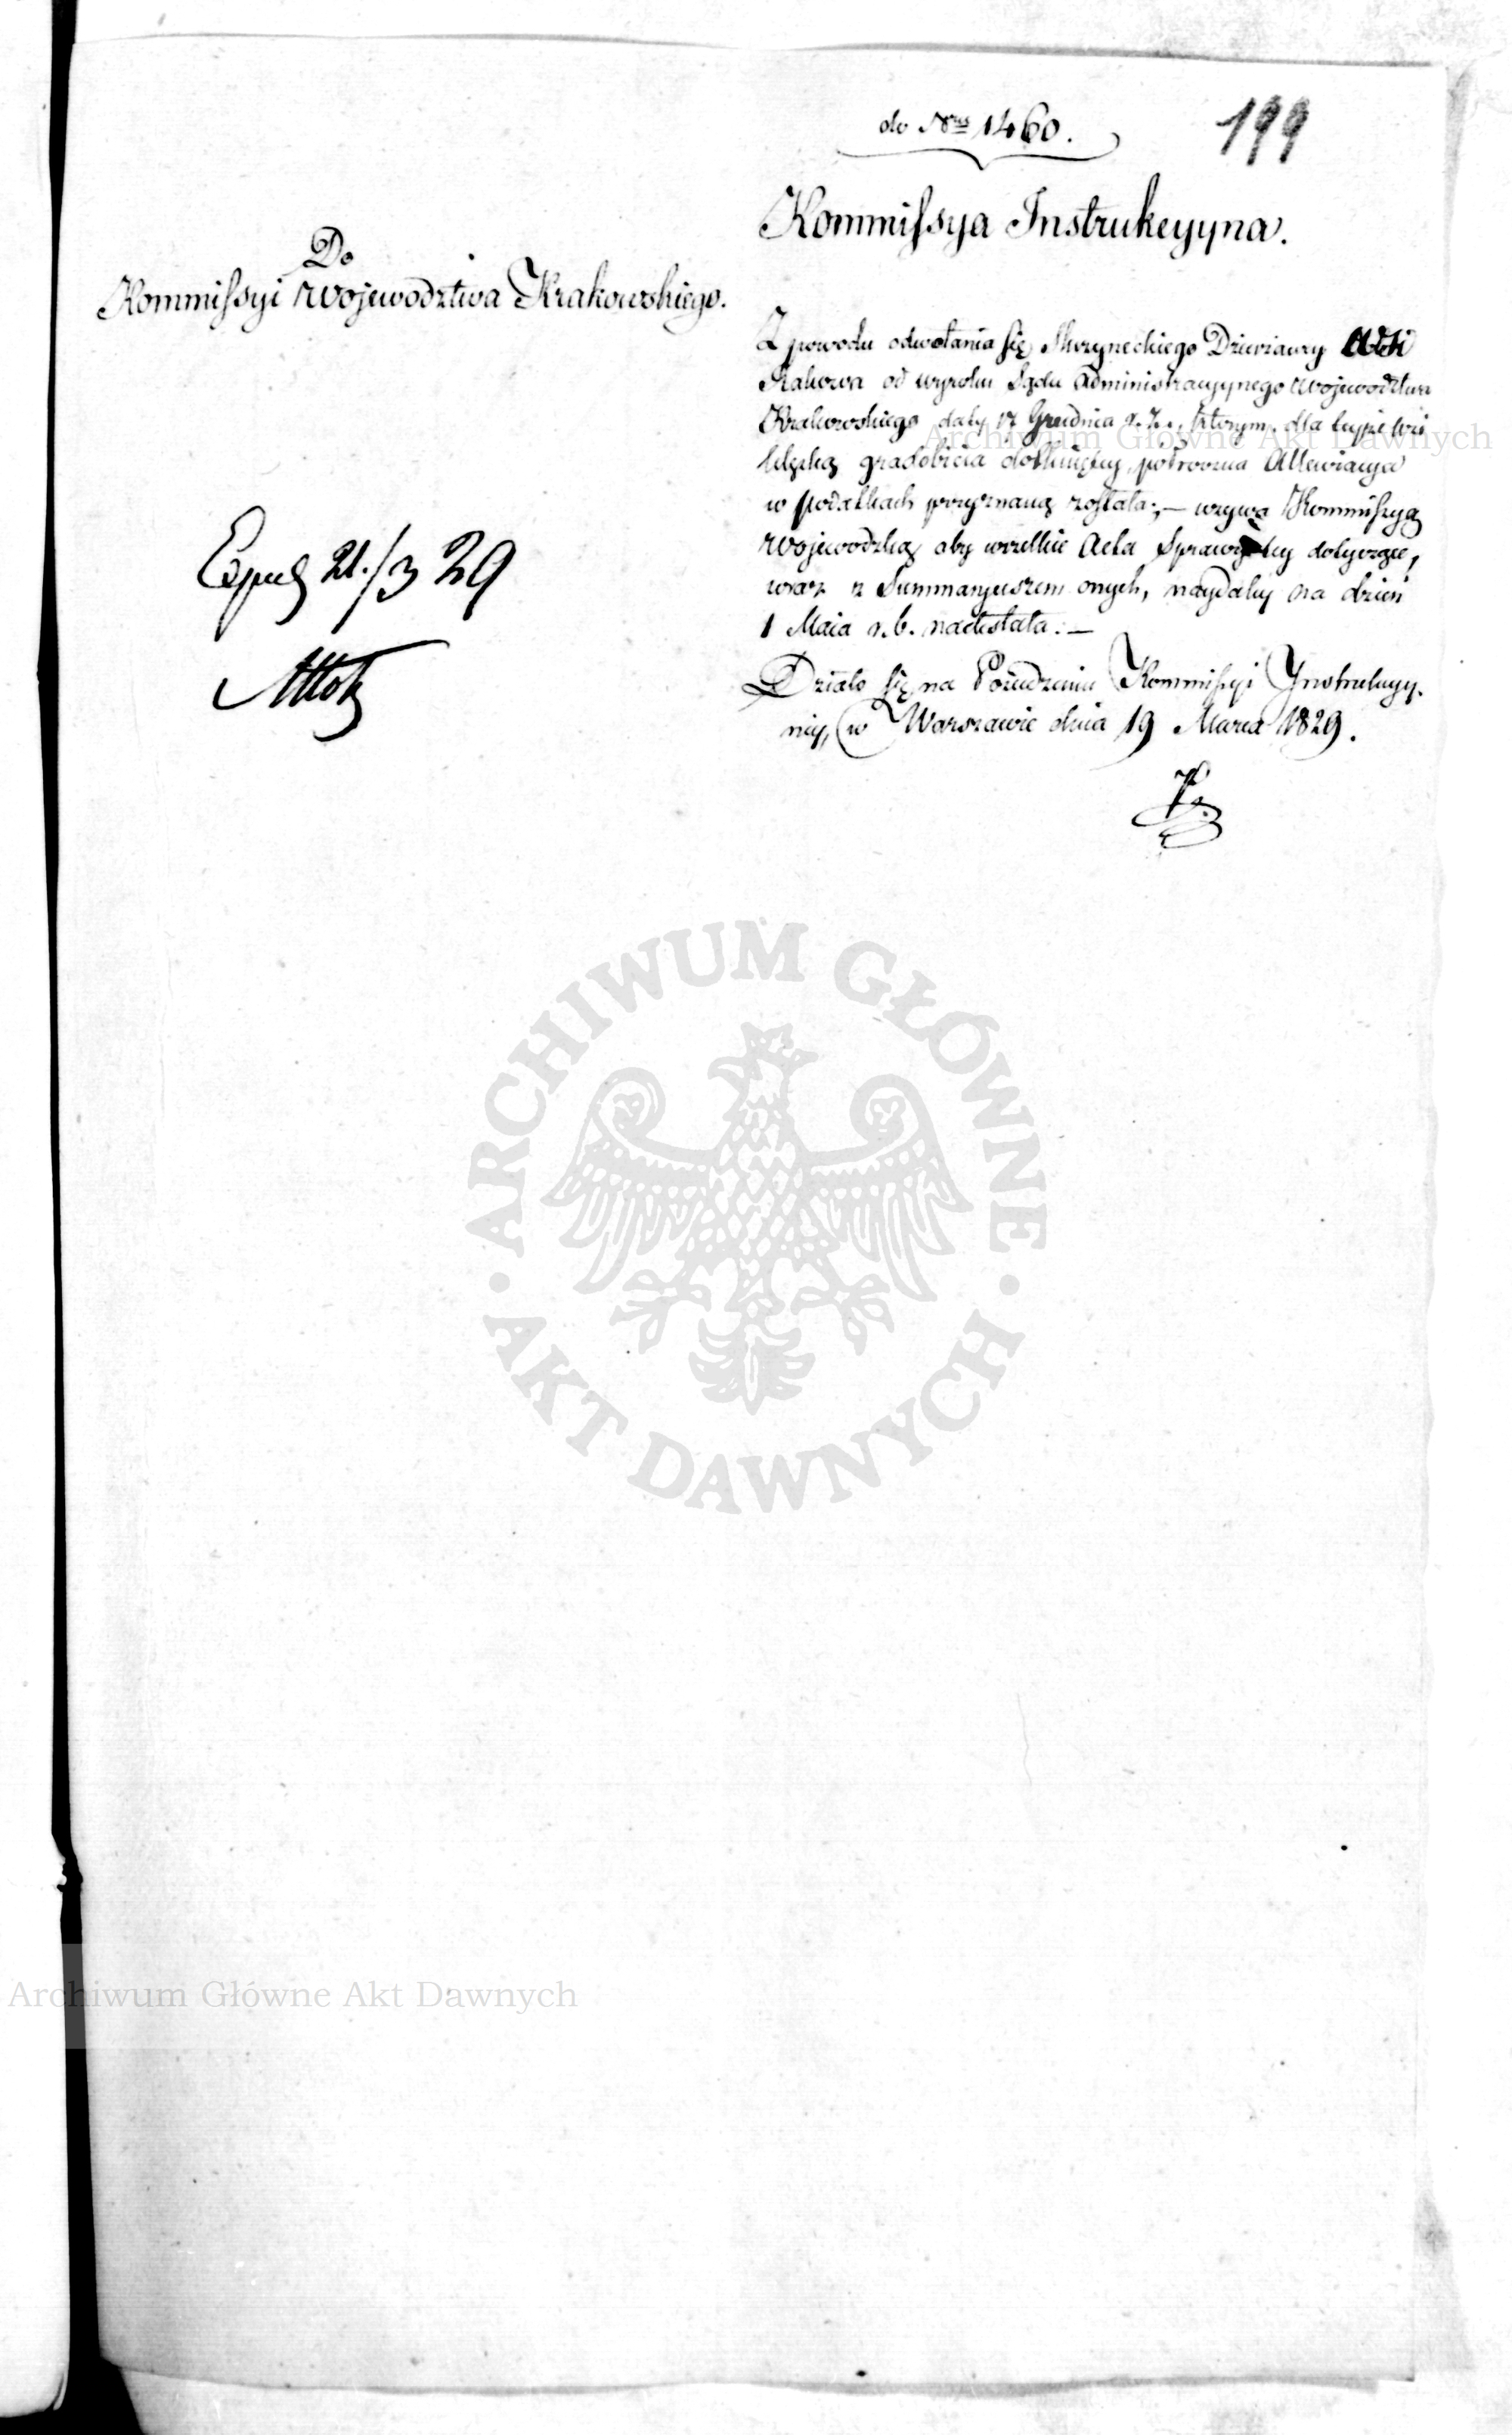 do Nrus 1460.
199
Kommissya Instrukcyyna.
Do
Kommissyi Wojewodztwa Krakowskiego.
Z powodu odwołania się Skrzyneckiego Dzierżawcy Wsi
Rakowa od wyroku Sądu Administracyynego Wojewodztwa
Krakowskiego daty 17 Grudnia r. z., którym dla teyże wsi
klęską gradobicia dotkniętey, potroczna Allewiacya
w podatkach przyznaną została; — wzywa Kommissyą
Wojewodzką aby wszelkie Acta Sprawy tey dotyczące,
wraz z Summaryuszem onych, naydaley na dzień
1 Maia r. b. nadesłała: —
Działo się na Posiedzeniu Kommissyi Ynstrukcyy-
ney, w Warszawie dnia 19 Marca 1829.
Exped 21./3 29
ARCHIWUM GŁÓWNE AKT DAWNYCH
Archiwum Główne Akt Dawnych
Archiwum Główne Akt Dawnych